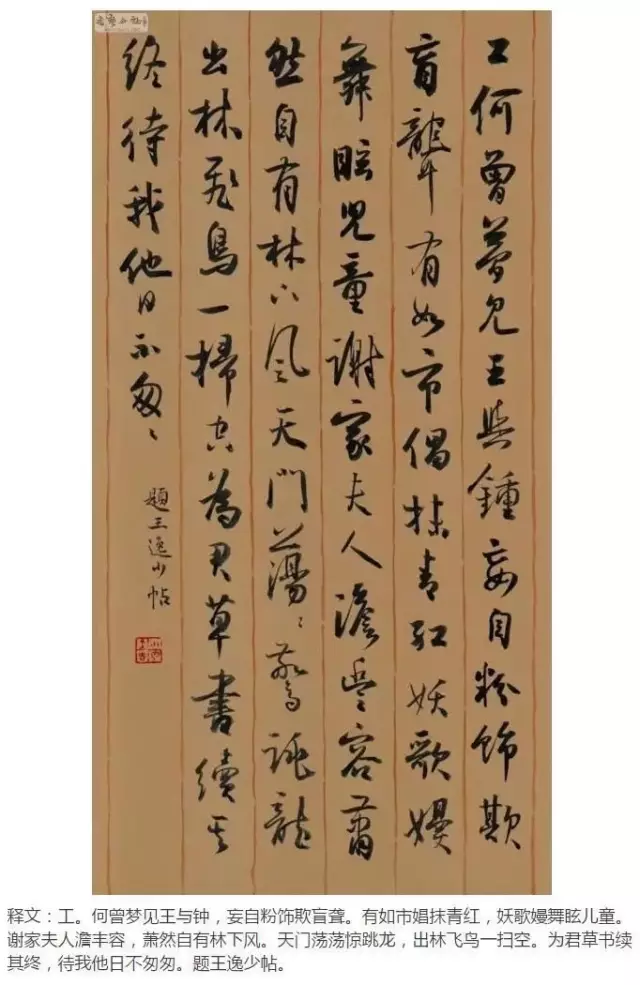 工何曾夢見王與鍾妄自粉飾欺
盲聾有如市倡抹青紅妖歌嫚
舞眩兒童謝家夫人澹豐容蕭
然自有林下風天門蕩〻驚跳龍
出林飛鳥一掃空為君草書續其
終待我他日不匆〻
題王逸少帖
释文：工。何曾梦见王与钟，妄自粉饰欺盲聋。有如市娼抹青红，妖歌嫚舞眩儿童。
谢家夫人澹丰容，萧然自有林下风。天门荡荡惊跳龙，出林飞鸟一扫空。为君草书续
其终，待我他日不匆匆。题王逸少帖。